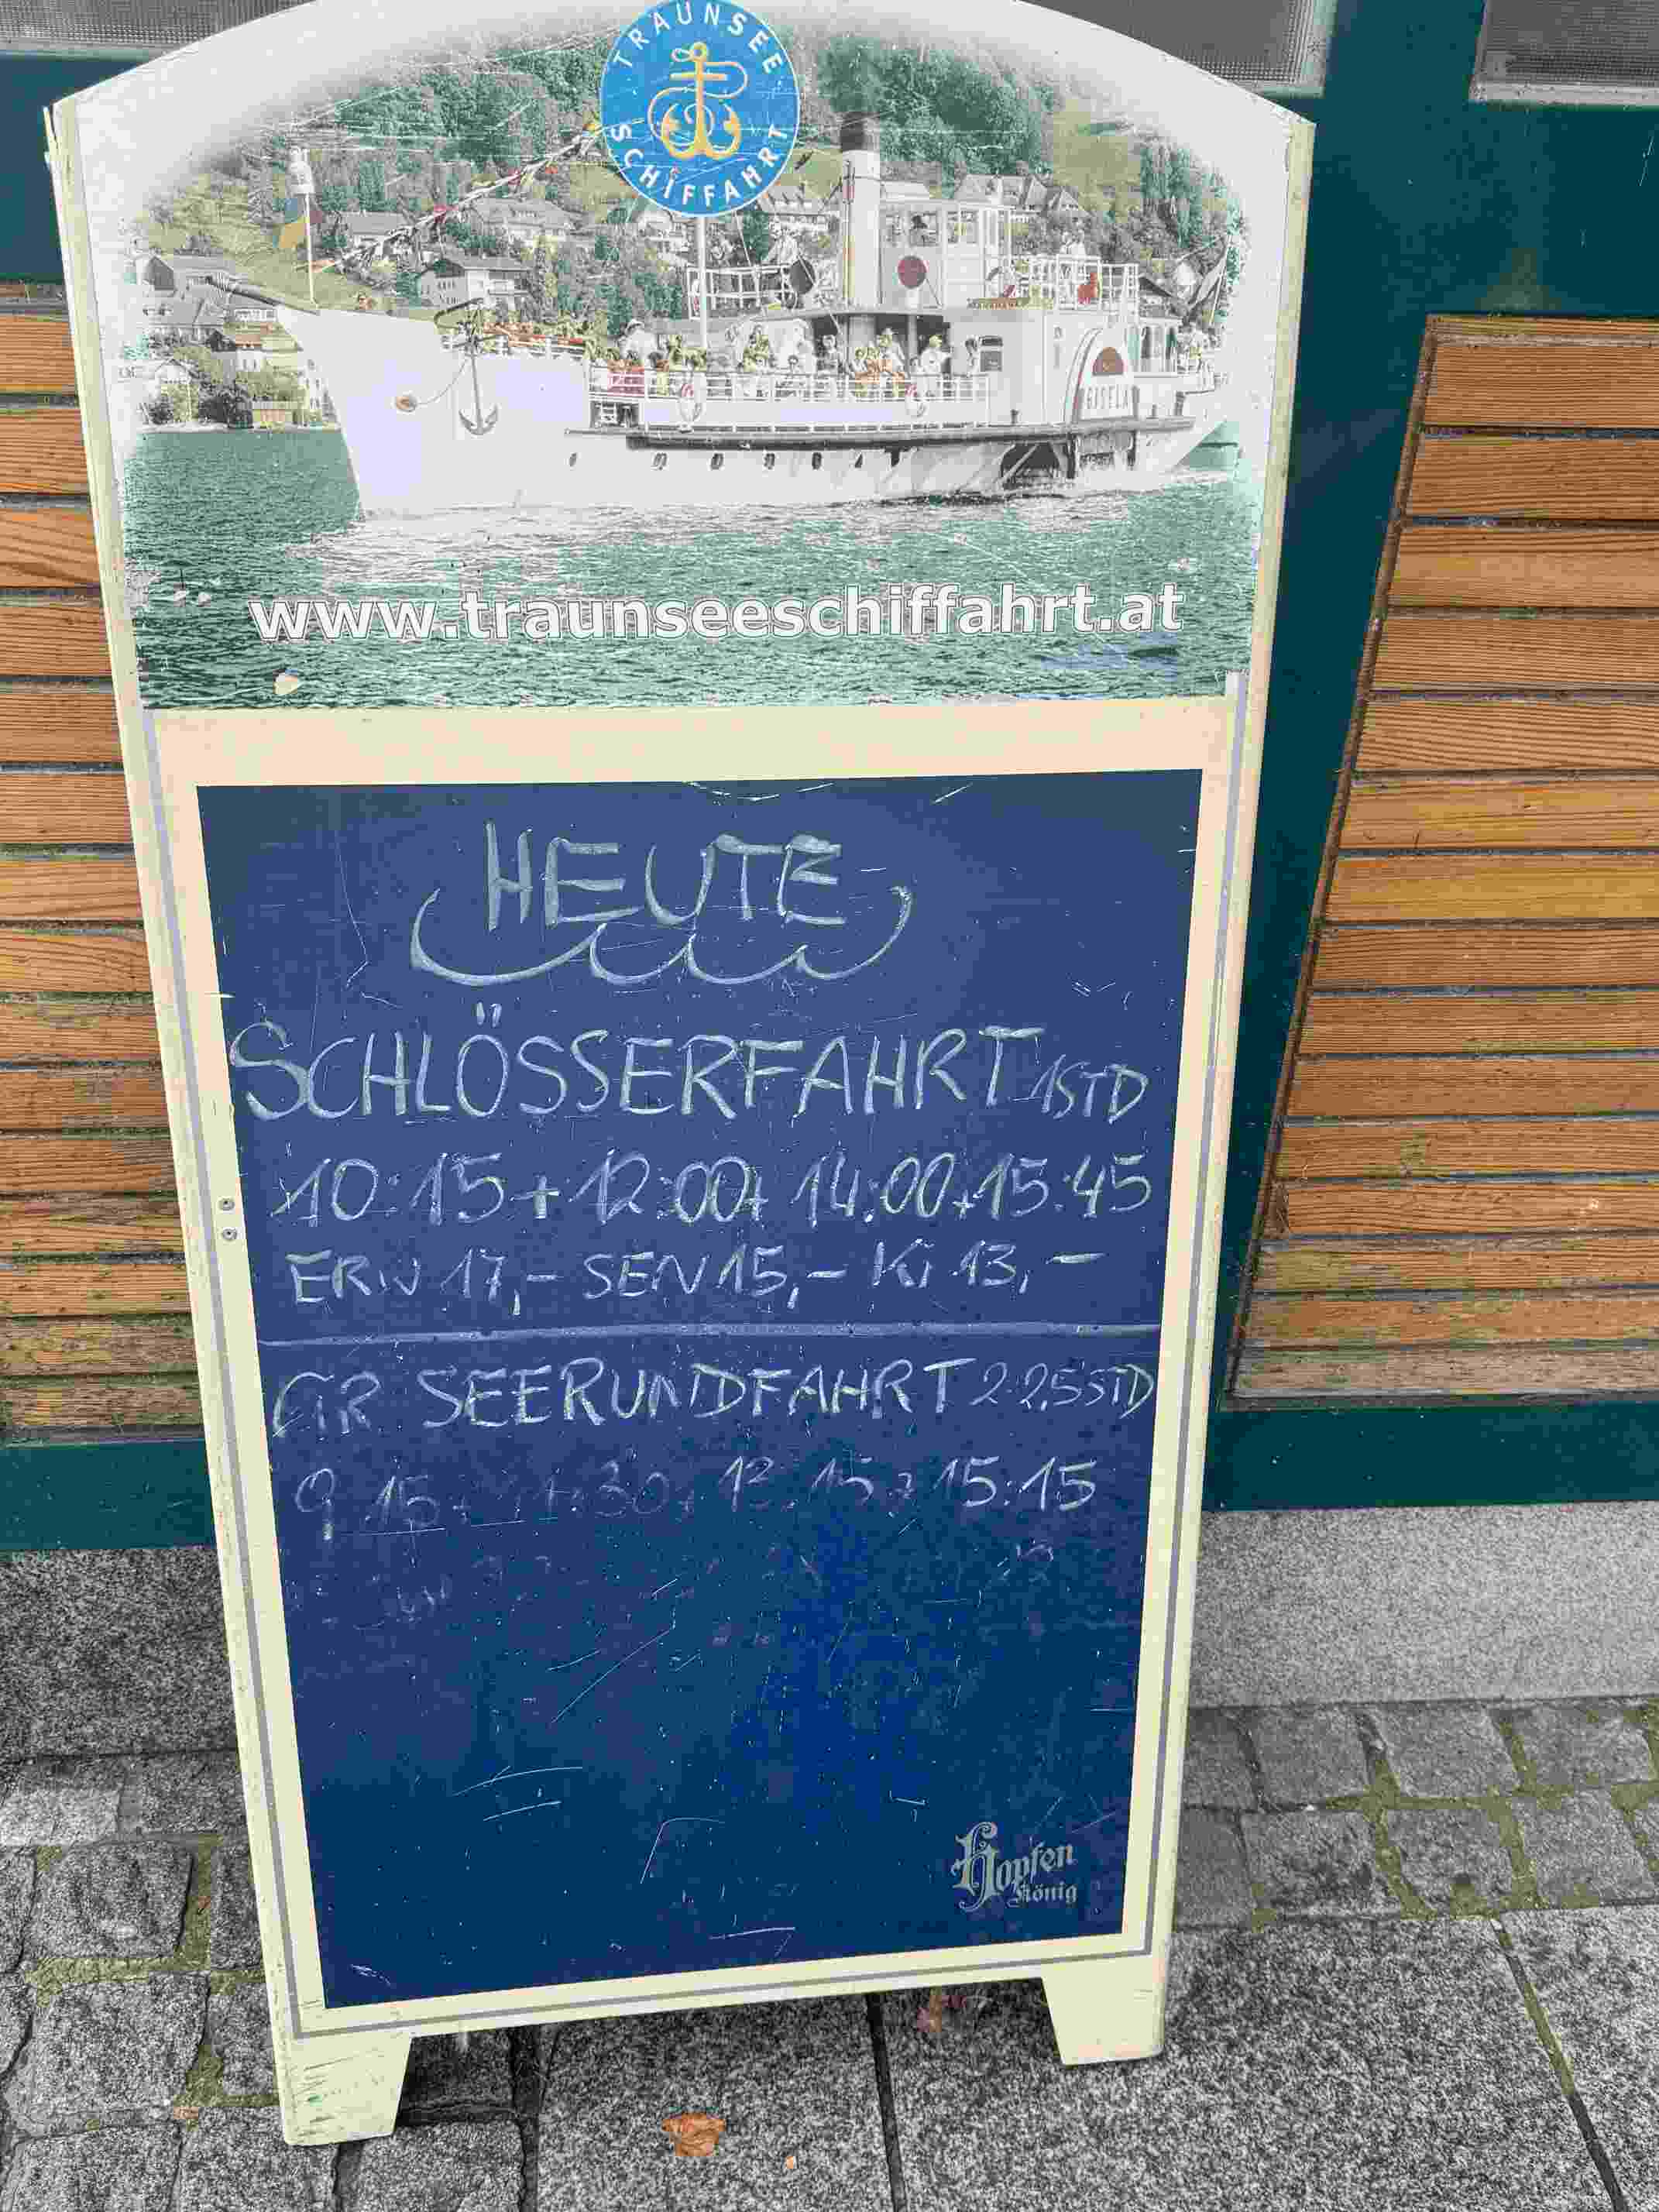 TRAUNSEE SCHIFFAHRT
GISELA
www.traunseeschiffahrt.at
HEUTE
SCHLÖSSERFAHRT 1STD
10:15 + 12:00 + 14:00 + 15:45
ERW 17,- SEN 15,- Ki 13,-
GR. SEERUNDFAHRT 2-2,5STD
9 15 + 11:30, 13.15, 15:15
Hopfen
König